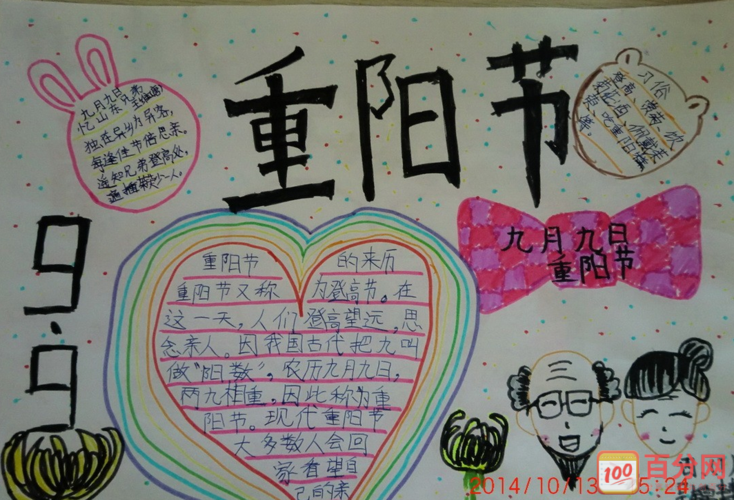 重阳节
九月九日
忆山东兄弟
独在异乡为异客，
每逢佳节倍思亲。
遥知兄弟登高处，
遍插茱萸少一人。
习俗
9.9
九月九日
重阳节
重阳节的来历
重阳节又称为登高节。在
这一天，人们登高望远，思
念亲人。因我国古代把九叫
做“阳数”，农历九月九日，
两九相重，因此称为重
阳节。现代重阳节
大多数人会回
家看望自
己的亲
2014/10/13
5:24
100
百分网